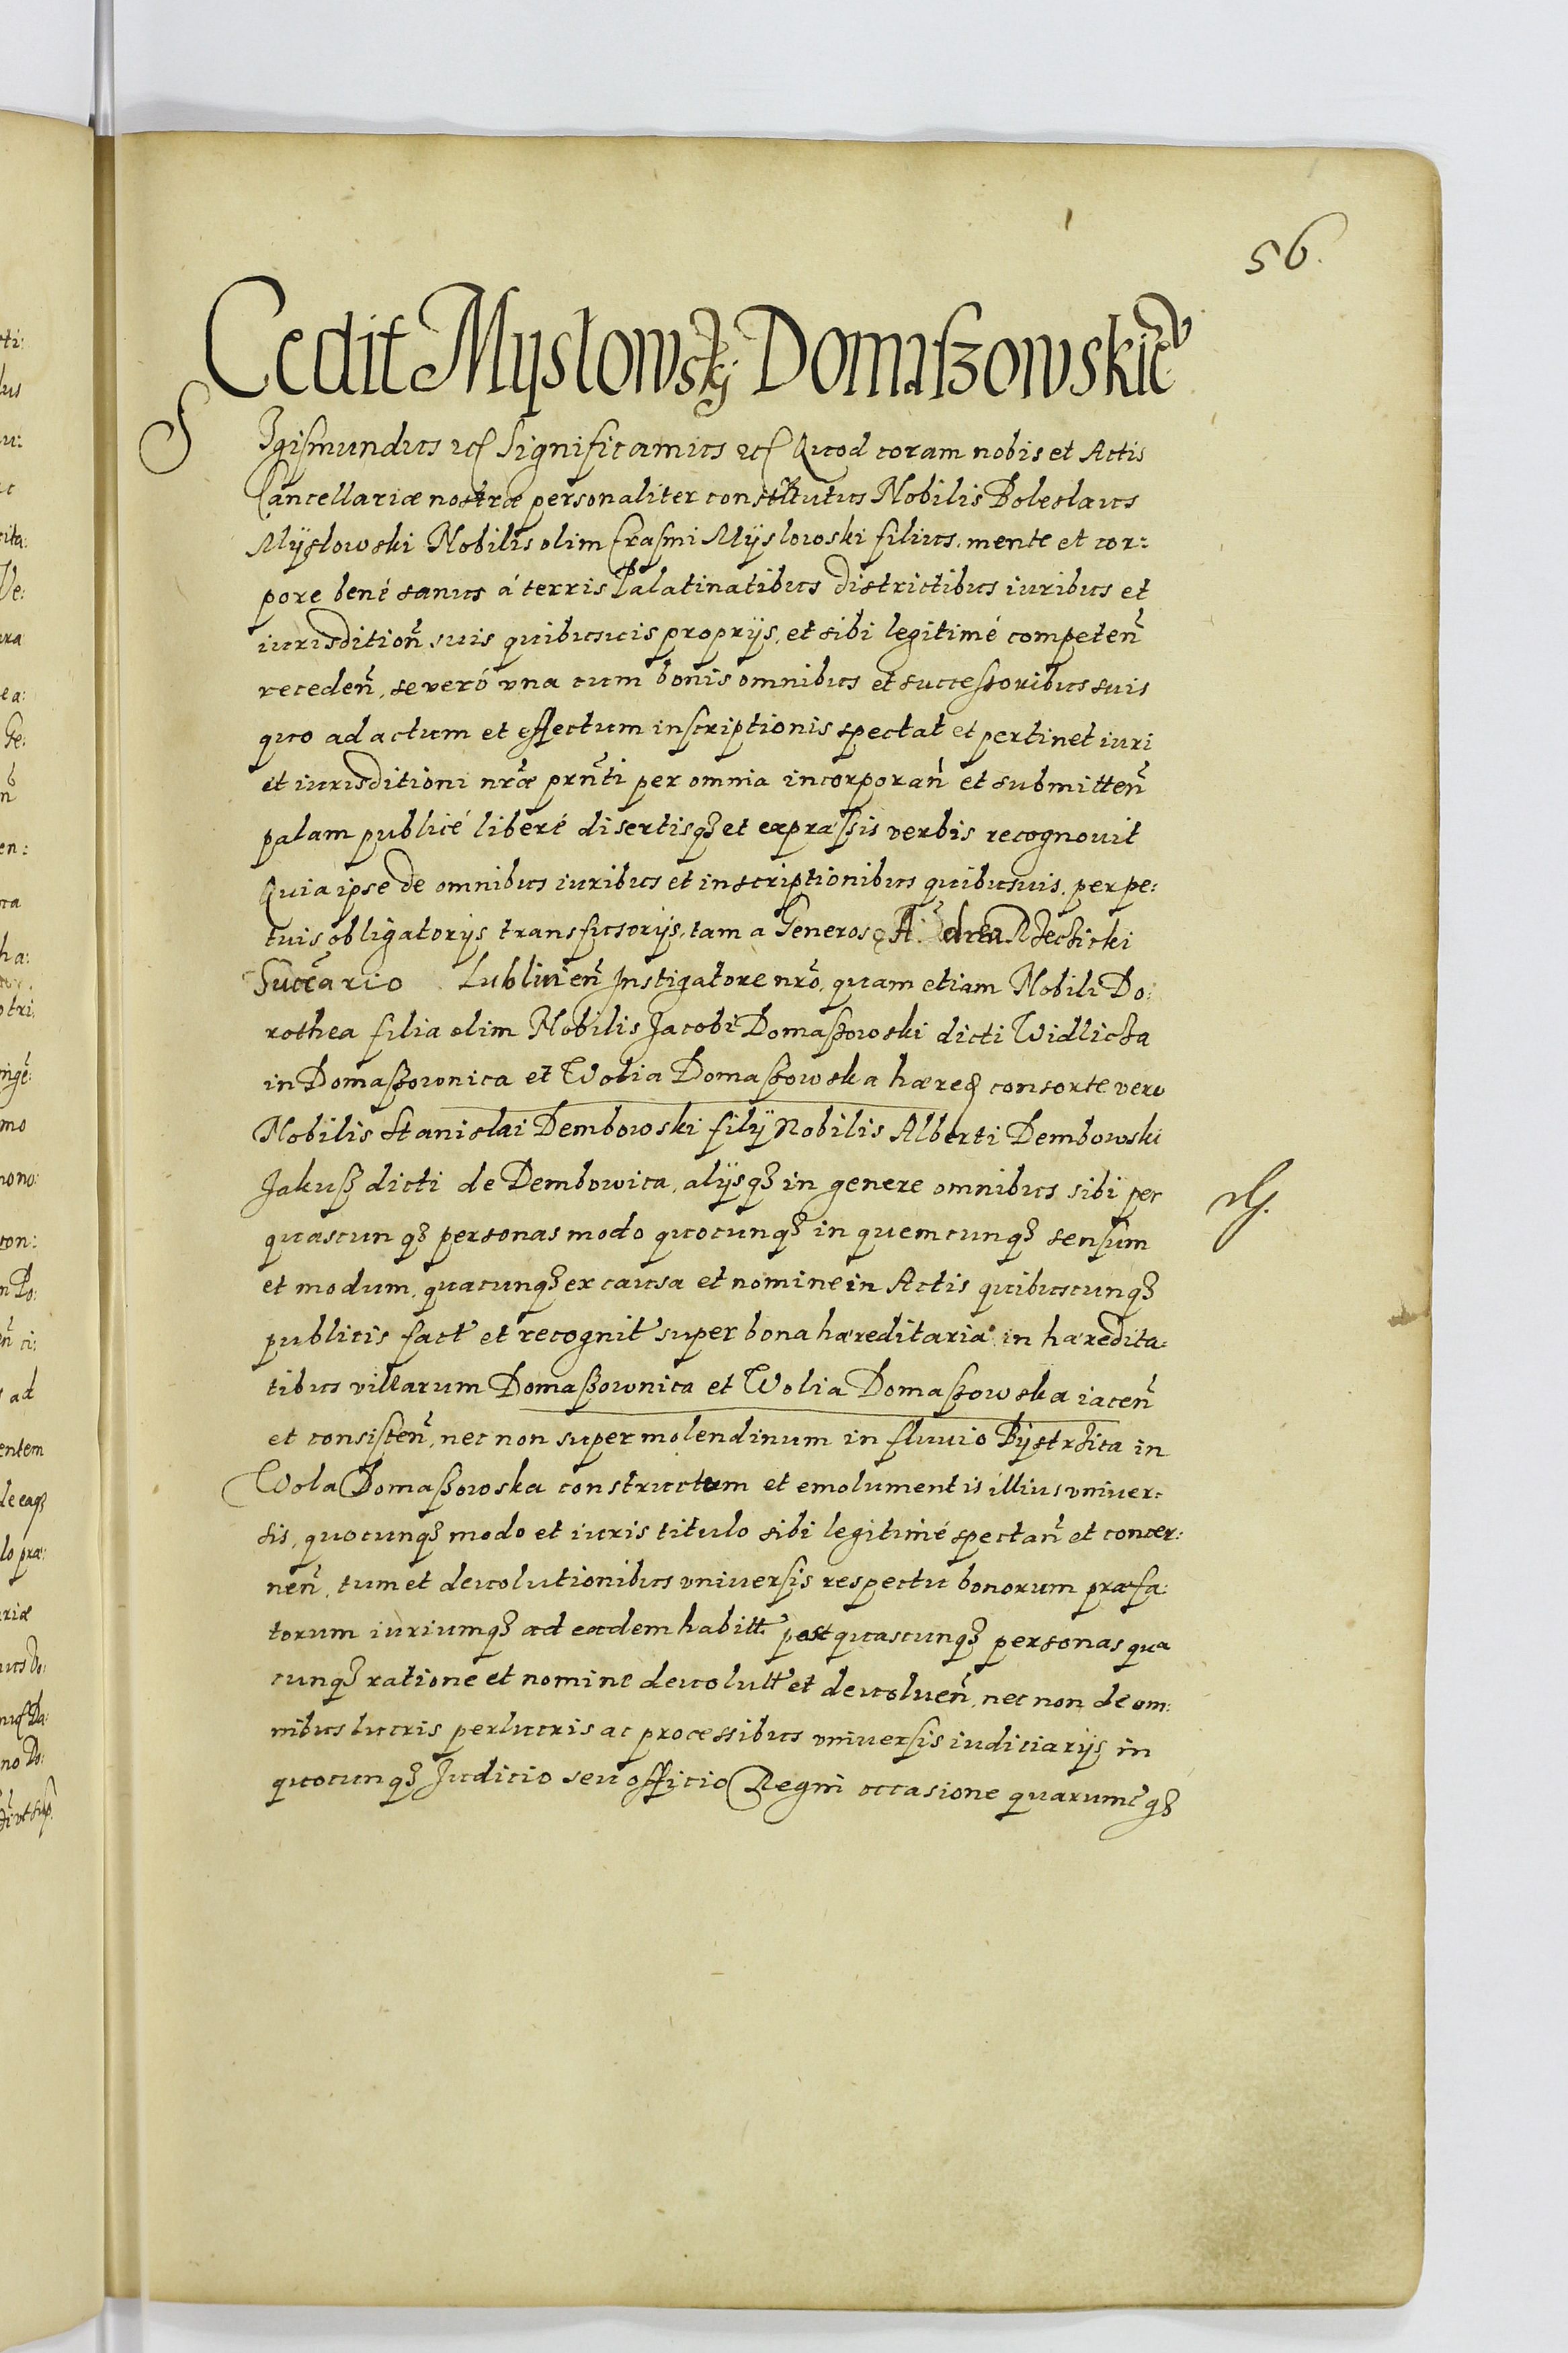 56.
Cedit Myslowskj Domaszowskie
Sigismundus etc Significamus etc Quod coram nobis et Actis
Cancellariæ nostræ personaliter constitutus Nobilis Boleslaus
Mÿslowski Nobilis olim Erasmi Mÿslowski filius, mente et cor:
pore bené sanus á terris Palatinatibus districtibus iuribus et
iurisdition̄ suis quibusuis proprijs, et sibi legitimé competen̄
receden̄, se veró vna cum bonis omnibus et successoribus suis
quo ad actum et effectum inscriptionis spectat et pertinet iuri
et iurisditioni nr̄æ prn̄ti per omnia incorporan̄ et submitten̄
palam publicé liberé disertisqȝ et expræssis verbis recognouit
Quia ipse de omnibus iuribus et inscriptionibus quibusuis, perpe:
tuis obligatorijs transfusorijs, tam a Generoso Andrea Rzeczicki
Succ̄ario Lublinien̄ Instigatore nrō, quam etiam Nobili Do:
rothea filia olim Nobilis Jacobi Domaszowski dicti Widlicza
in Domaszownica et Wolia Domaszowska hæred consorte vero
Nobilis Stanislai Dembowski filÿ Nobilis Alberti Dembowski
Jakusz dicti de Dembowica, alÿsqȝ in genere omnibus sibi per
quascunqȝ personas modo quocunqȝ in quemcunqȝ sensum
et modum, quacunqȝ ex causa et nomine in Actis quibuscunqȝ
publicis fact̄ et recognit̄ super bona hæreditaria in hæredita:
tibus villarum Domaszownica et Wolia Domaszowska iacen̄
et consisten̄, nec non super molendinum in fluuio Bÿstrzica in
Wola Domaszowska constructum et emolumentis illius vniuer:
sis, quocunqȝ modo et iuris titulo sibi legitimé spectan̄ et concer:
nen̄, tum et deuolutionibus vniuersis respectu bonorum præfa:
torum iuriumqȝ ad eadem habitt̄ post quascunqȝ personas qua
cunqȝ ratione et nomine deuolutt̄ et deuoluen̄, nec non de om:
nibus lucris perlucris ac processibus vniuersis iudiciarijs in
quocunqȝ Judicio seu officio Regni occasione quarumc̄qȝ